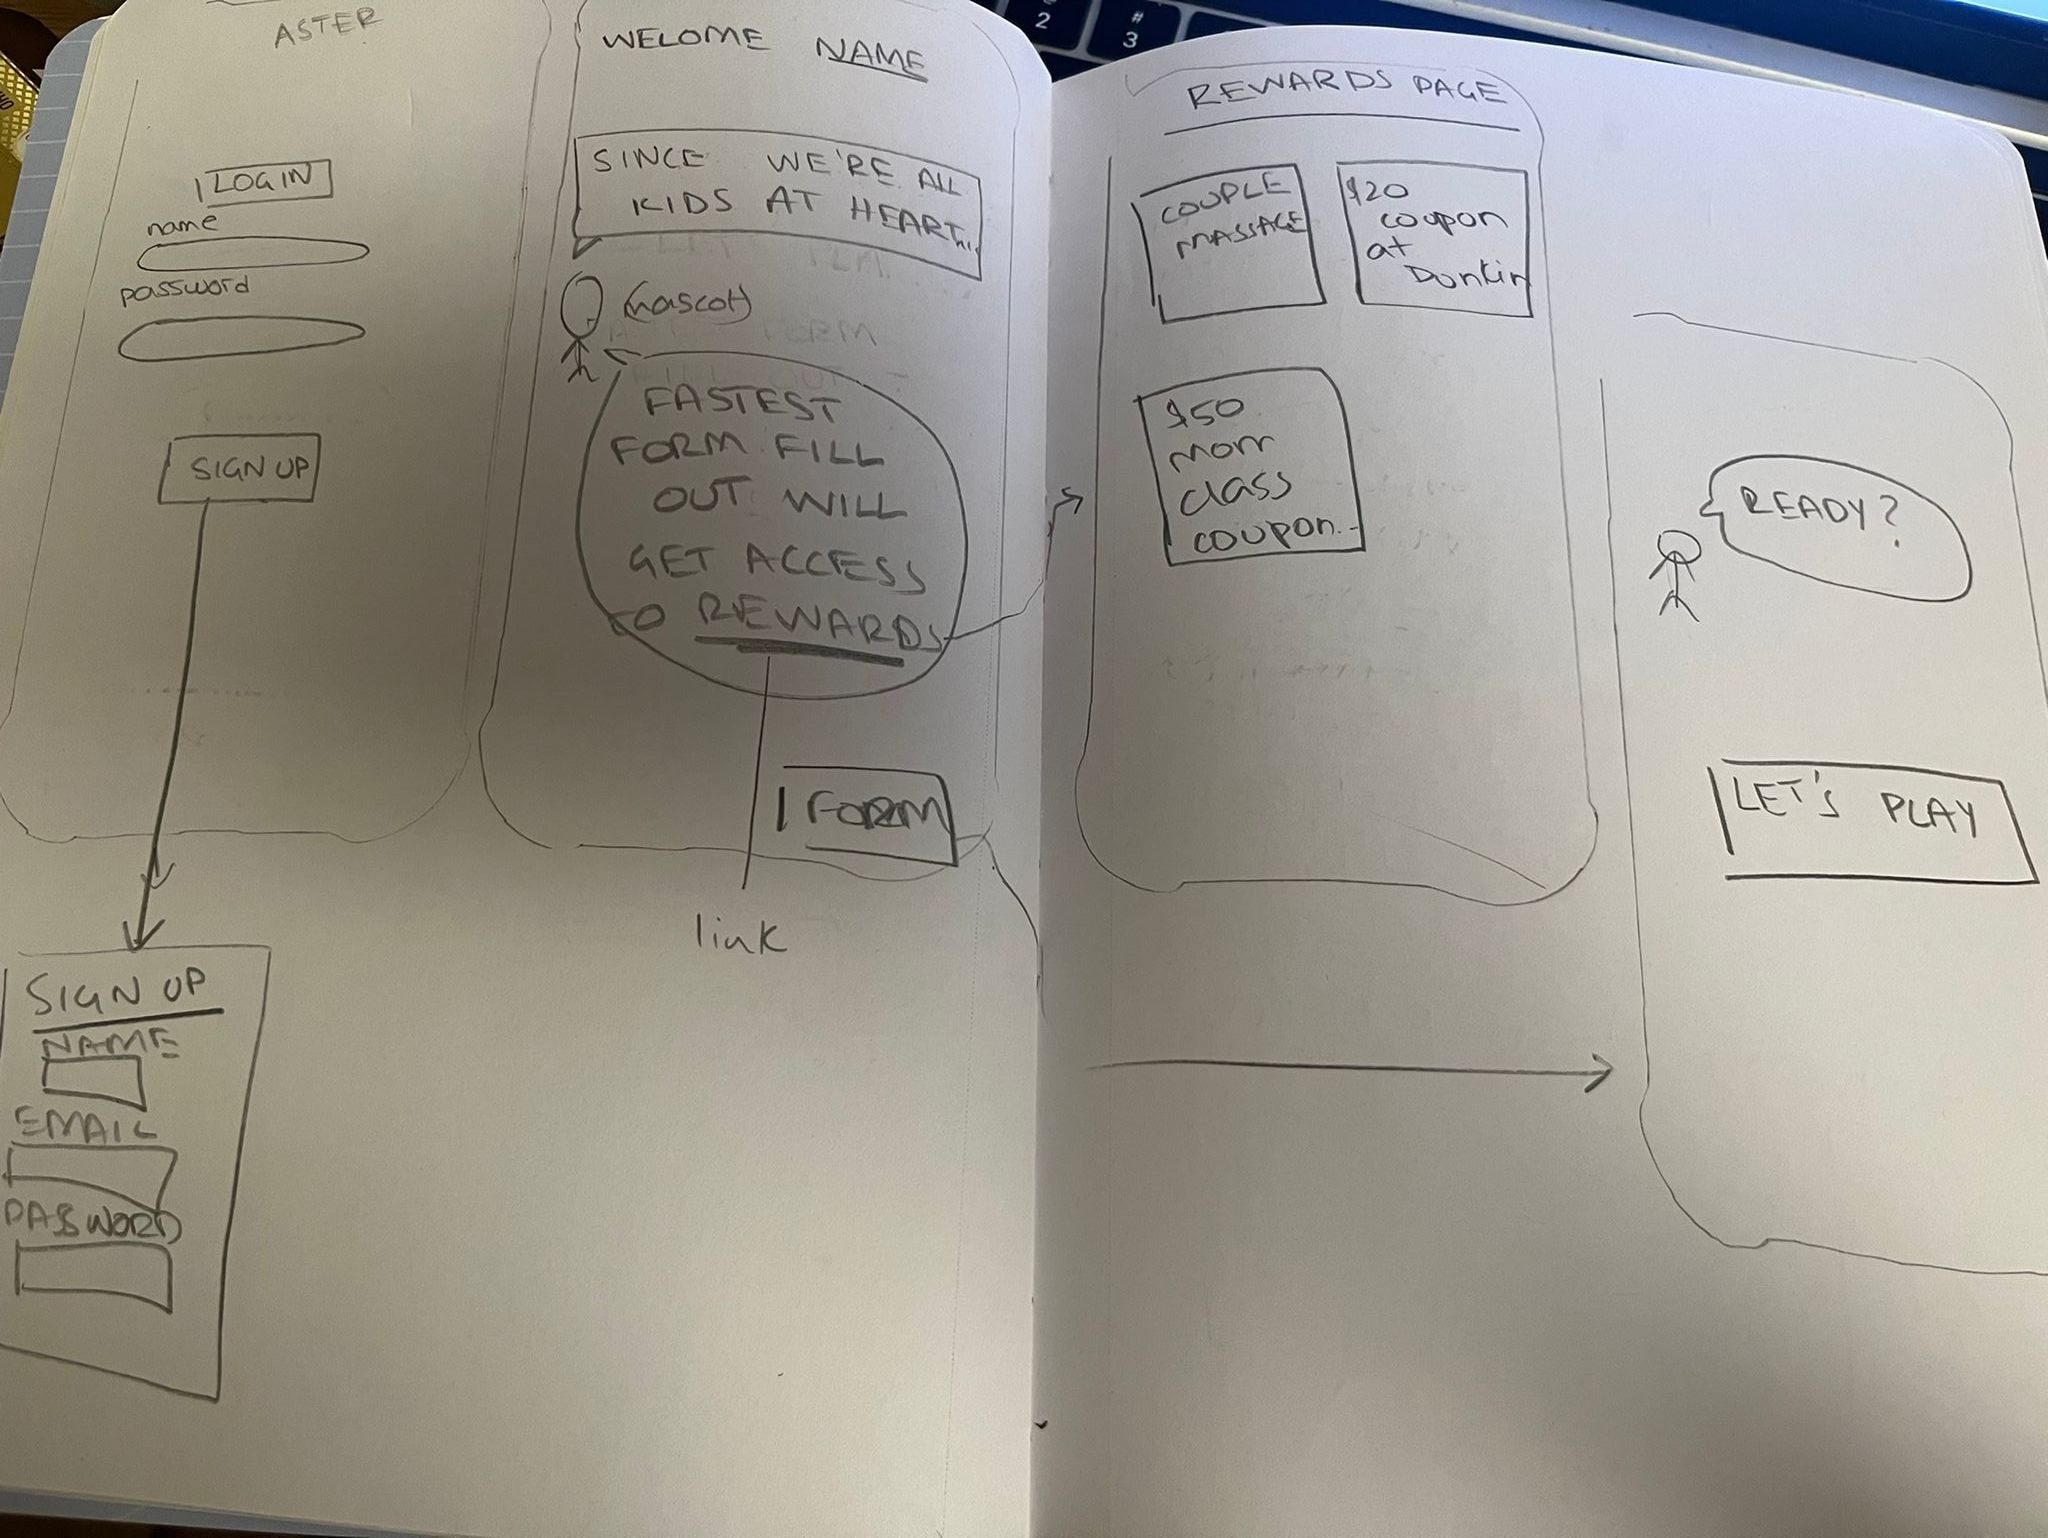 ASTER
LOGIN
name
password
SIGN UP
SIGN UP
NAME
EMAIL
PASSWORD
WELOME NAME
SINCE WE'RE ALL
KIDS AT HEART...
(mascot)
FASTEST
FORM FILL
OUT WILL
GET ACCESS
TO REWARDS
FORM
link
REWARDS PAGE
COUPLE
MASSAGE
$20
coupon
at
Dunkin
$50
mom
class
coupon
READY?
LET'S PLAY
2
#
3